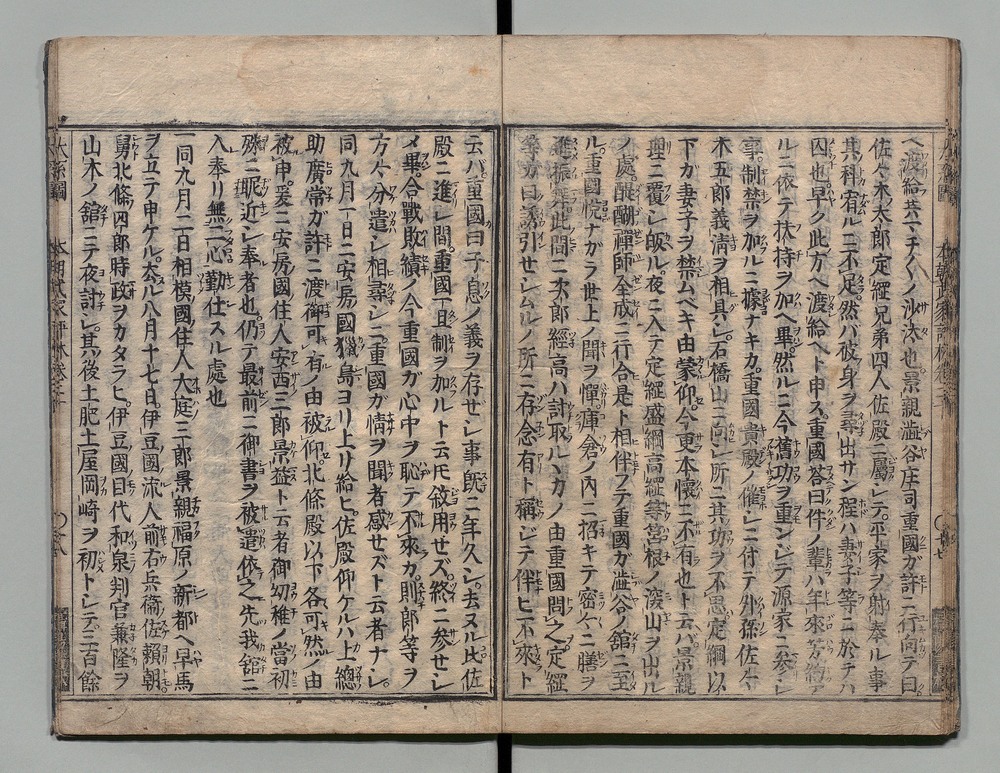 へ渡給共ニチノ沙汰也景親澁谷庄司重國ガ許ニ行向テ曰
佐々木太郎定經兄弟四人佐殿ニ屬レテ平家ヲ射奉ル事
其科有ルニ不足然バ彼身ヲ尋出サン程ハ妻子等ニ於テハ
囚也早ク此方ヘ渡給ヘト申ス重國答曰件ノ輩ハ年來芳約
ルニ依テ扶持ヲ加ヘ畢然ルニ今舊功ヲ重ンジテ源家ニ參レ
事制禁ヲ加ルニ據ナキカ重國貴殿ノ催レニ付テ外孫佐々
木五郎義清ヲ相具レ石橋山ニ向レ所ニ其功ヲ不思定綱以
下ガ妻子ヲ禁ムベキ由蒙仰今更本懷ニ不有也ト云バ景親
理ニ覆レ皈ル夜ニ入テ定經盛綱高經等筥根ノ深山ヲ出ル
ノ處醍醐禪師全成ニ行合是ト相伴フテ重國ガ澁谷ノ舘ニ至
ル重國悦ナガラ世上ノ聞ヲ憚庫倉ノ内ニ招キテ密々ニ膳ヲ
進振舞此間ニ次郎經高ハ討取ルヽカノ由重國問之定經
等ガ曰誘引セシムルノ所ニ存念有ト稱レテ伴ヒ不來ト
云バ重國曰子息ノ義ヲ存ゼレ事既ニ年久レ去ヌル比佐
殿ニ進レ間重國一旦制ヲ加ルト云モ敘用セズ終ニ參ゼレ
メ畢合戰敗績ノ今重國ガ心中ヲ恥テ不來カ則郎等ヲ
方々分遣レ相尋レニ重國ガ情ヲ聞者感セズト云者ナレ
同九月一日ニ安房國獵島ヨリ上リ給ヒ佐殿仰ケルハ上總
助廣常ガ許ニ渡御可有ノ由被仰北條殿以下各可然ノ由
被申爰ニ安房國住人安西三郎景益ト云者御幼稚ノ當初
殊ニ昵近レ奉者也仍テ最前ニ御書ヲ被遣依之先我舘ニ
入奉リ無二心勤仕スル處也
一同九月二日相模國住人大庭三郎景親福原ノ新都ヘ早馬
ヲ立テ申ケル去ル八月十七日伊豆國流人前右兵衞佐賴朝
舅北條四郎時政ヲカタラヒ伊豆國目代和泉判官兼隆ヲ
山木ノ舘ニテ夜討レ其後土肥土屋岡崎ヲ初トレテ三百餘